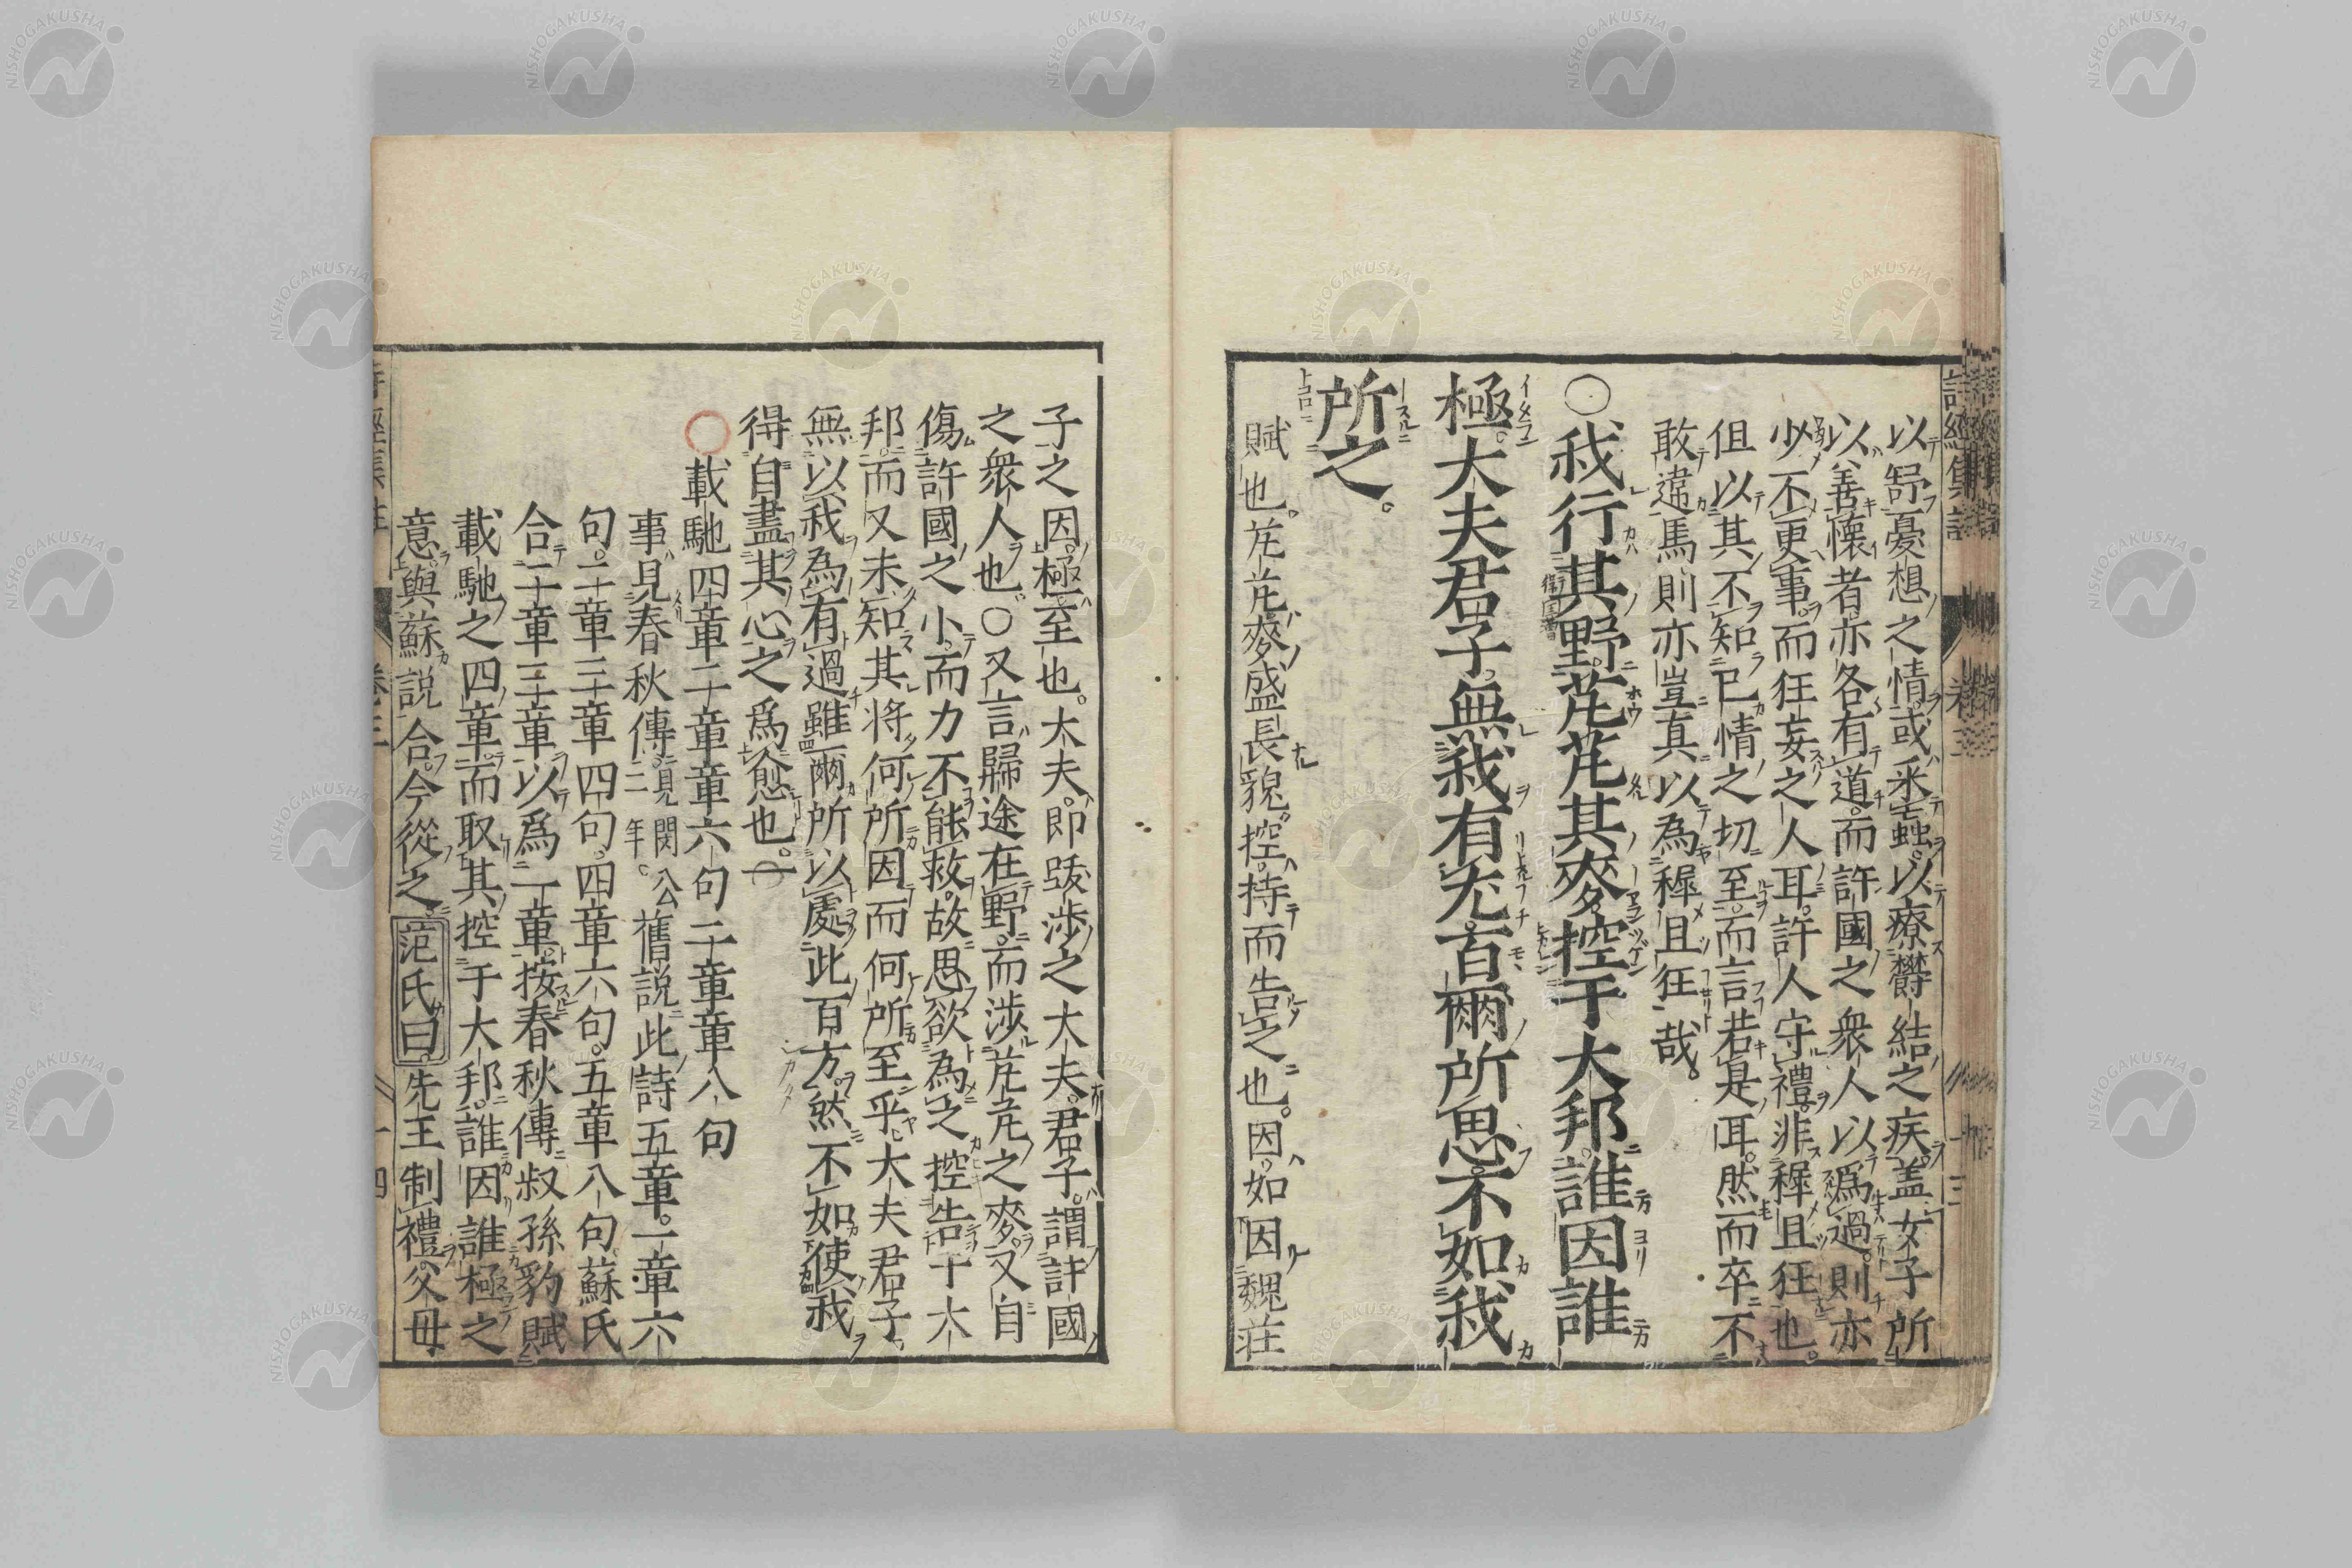 以舒憂想之情或采蝱以療鬱結之疾蓋女子所
以善懷者亦各有道而許國之衆人以爲過則亦
少不更事而狂妄之人耳許人守禮非穉且狂也
但以其不知已情之切至而言若是耳然而卒不
敢違焉則亦豈真以為穉且狂哉
○我行其野芃芃其麥控于大邦誰因誰
極大夫君子無我有尤百爾所思不如我
所之
賦也芃芃麥盛長貌控持而告之也因如因魏莊
子之因極至也大夫即跋涉之大夫君子謂許國
之衆人也○又言歸途在野而涉芃芃之麥又自
傷許國之小而力不能救故思欲為之控告于大
邦而又未知其将何所因而何所至乎大夫君子
無以我為有過雖爾所以處此百方然不如使我
得自盡其心之爲愈也
載馳四章二章章六句二章章八句
事見春秋傳見閔公二年舊説此詩五章一章六
句二章三章四句四章六句五章八句蘇氏
合二章三章以爲一章按春秋傳叔孫豹賦
載馳之四章而取其控于大邦誰因誰極之
意與蘇説合今從之范氏曰先王制禮父母
詩經集註
卷三
NISHOGAKUSHA